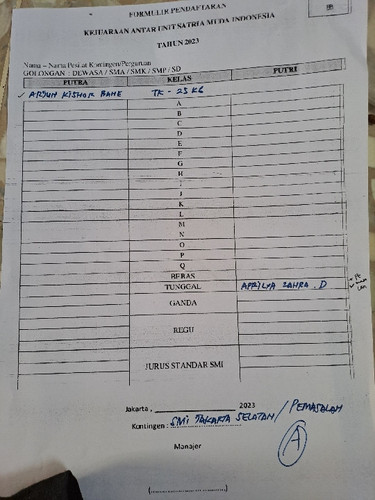 FORMULIR PENDAFTARAN
KEJUARAAN ANTAR UNIT SATRIA MUDA INDONESIA
TAHUN 2023
Nama – Nama Pesilat Kontingen/Perguruan
GOLONGAN : DEWASA / SMA / SMK / SMP / SD
PUTRA KELAS PUTRI
ARJUN KISHOR BANE TK - 25 KG
A
B
C
D
E
F
G
H
I
J
K
L
M
N
O
P
Q
BEBAS
TUNGGAL APRILYA ZAHRA . D
GANDA
REGU
JURUS STANDAR SMI
Jakarta , 2023
Kontingen : SMI JAKARTA SELATAN / PEMASALAN
A
Manajer